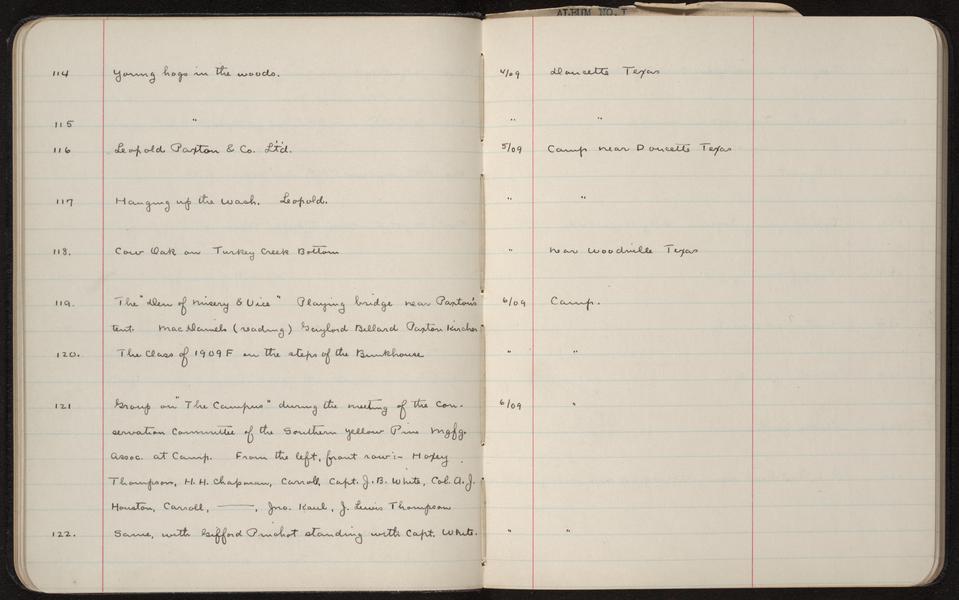 ALBUM NO. I
114 Young hogs in the woods. 4/09 Doucette Texas
115 " " "
116 Leopold Paxton & Co. Lt'd. 5/09 Camp near Doucette Texas
117 Hanging up the wash. Leopold. " "
118. Cow Oak on Turkey Creek Bottom " near Woodville Texas
119. The "Den of Misery & Vice" Playing bridge near Paxton's 6/09 Camp.
tent. MacDaniels (reading) Gaylord Billard Paxton Kircher
120. The Class of 1909 F on the steps of the Bunkhouse " "
121 Group on "The Campus" during the meeting of the Con- 6/09 "
servation Committee of the Southern Yellow Pine Mgfg.
Assoc. at Camp. From the left, front row:- Hoxey
Thompson, H.H. Chapman, Carroll, Capt. J.B. White, Col. A.J.
Houston, Carroll, ——, Jno. Kaul, J. Lewis Thompson
122. Same, with Gifford Pinchot standing with Capt. White. " "